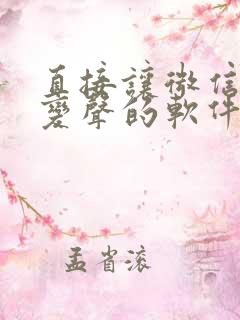 直接讓微信
變聲的軟件
孟省滚